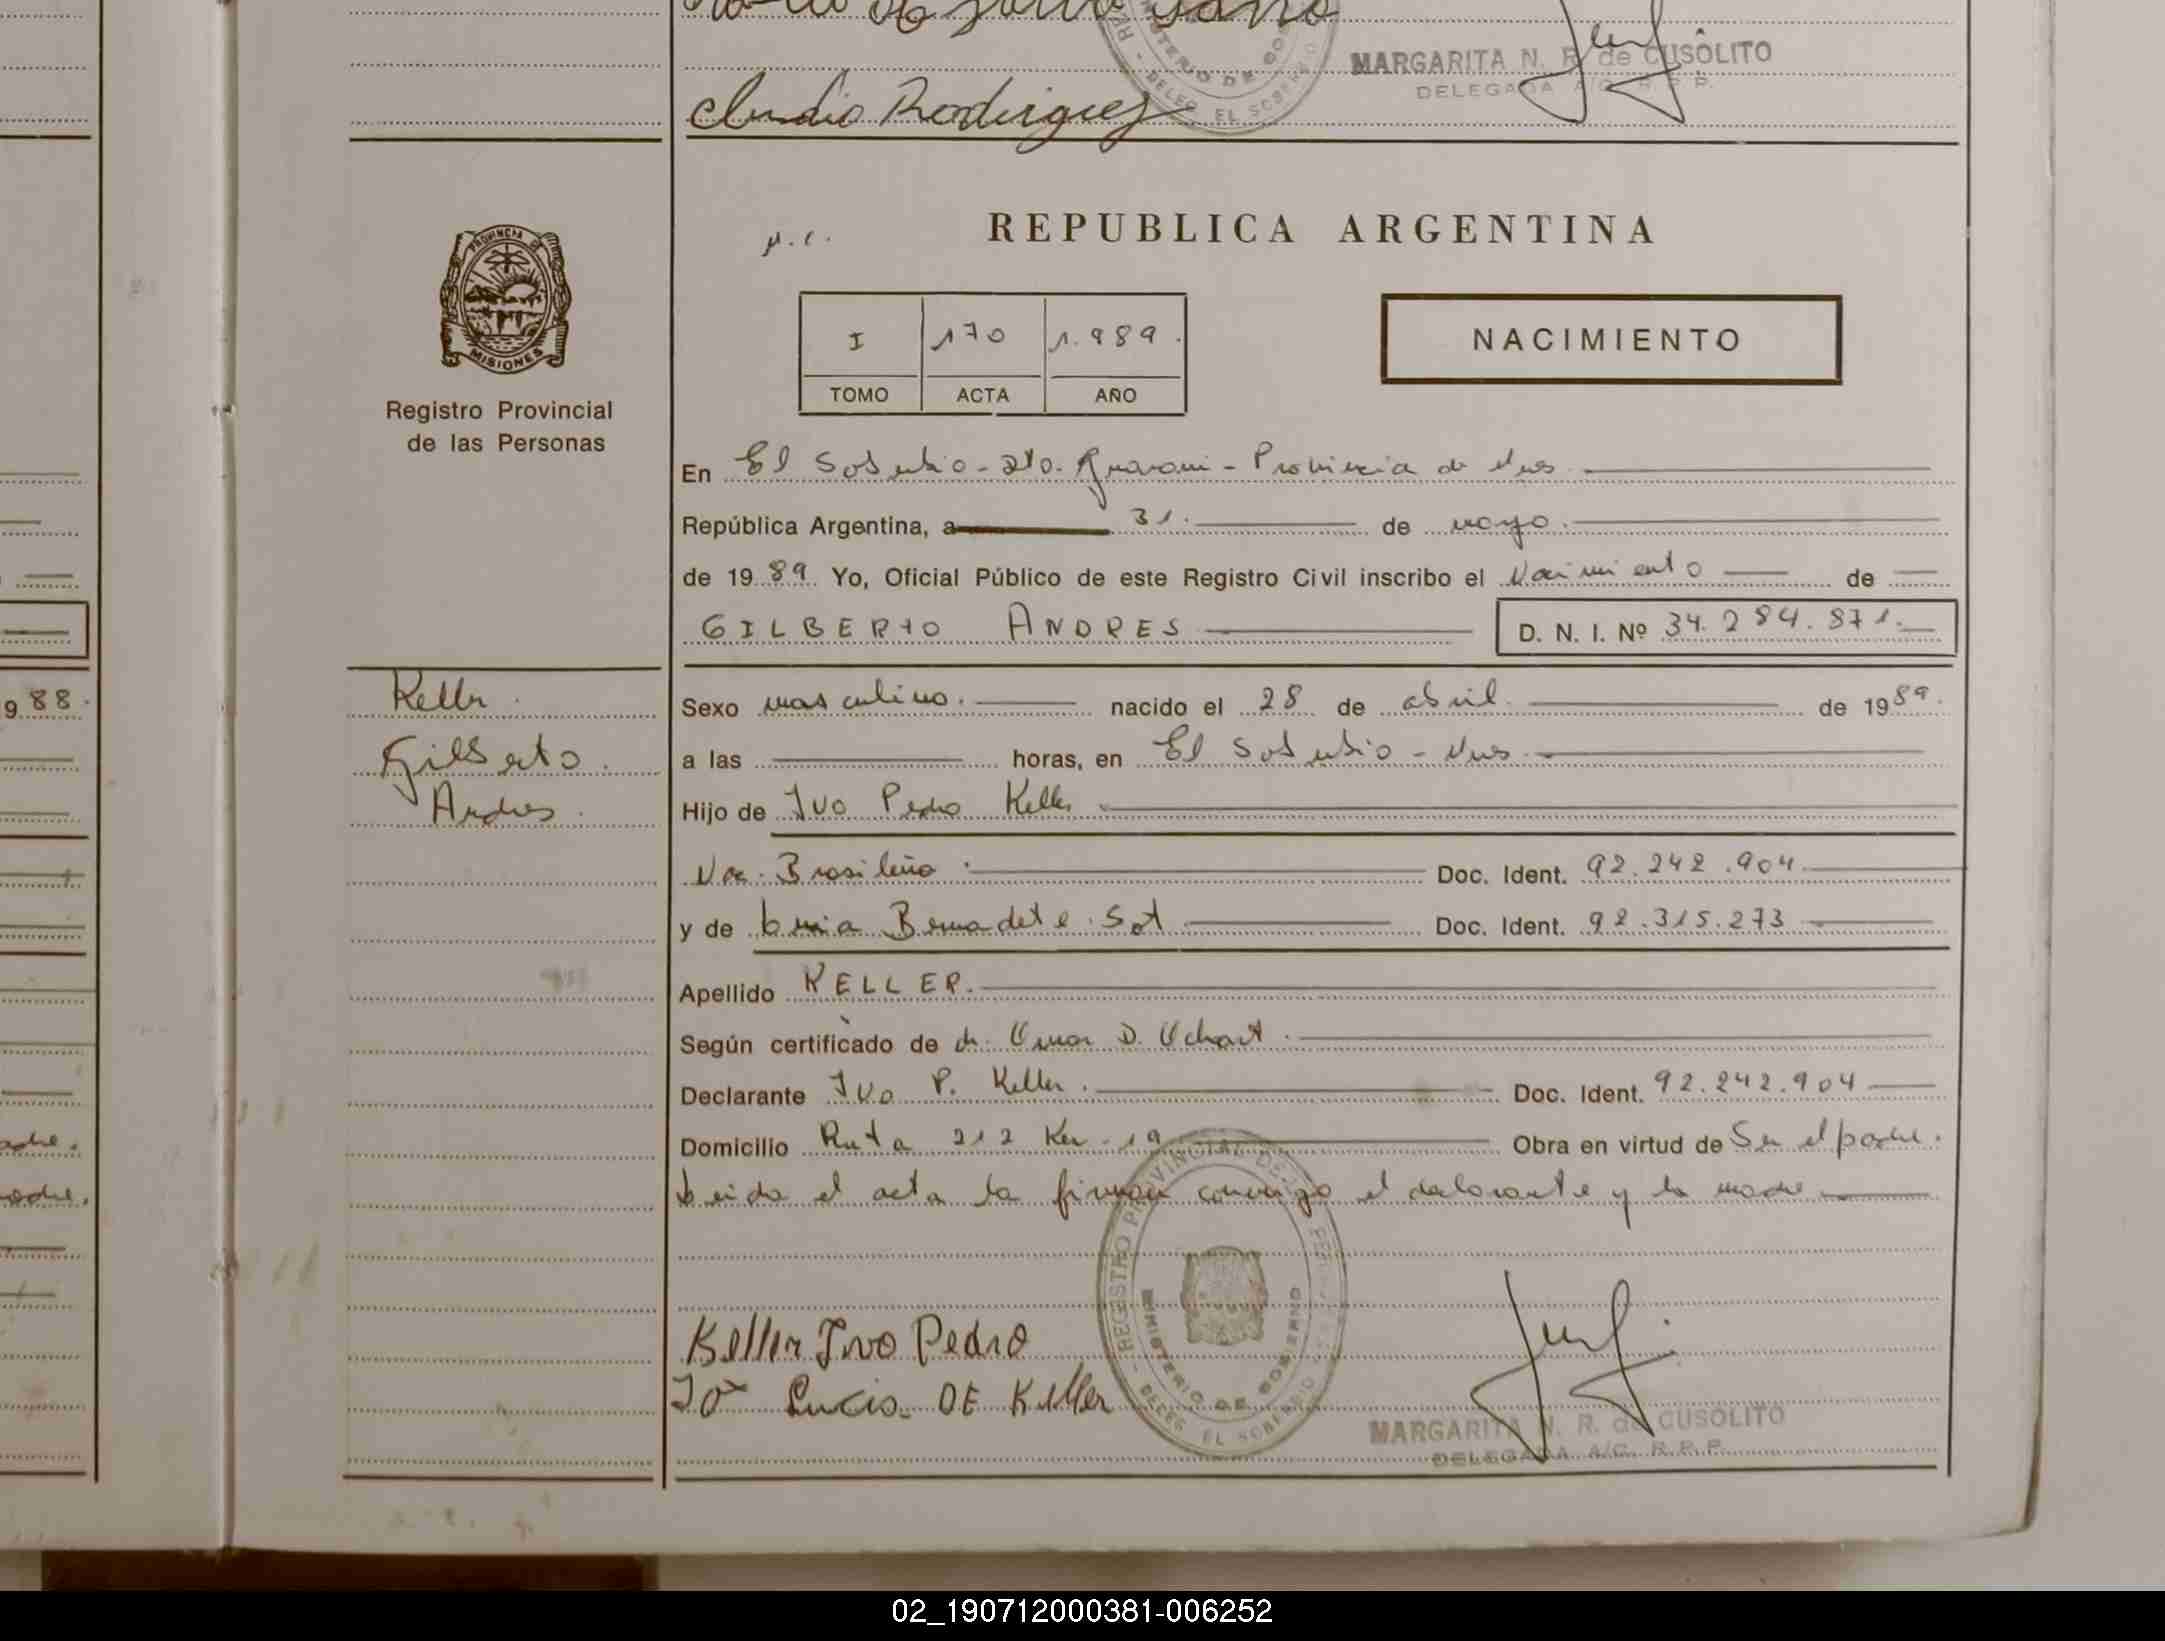 Claudio Rodriguez
MARGARITA N. R. de CUSOLITO
DELEGADA A/C. R. P. P.
DELEG. EL SOBERBIO
PROVINCIA DE
MISIONES
Registro Provincial
de las Personas
REPUBLICA ARGENTINA
I 170 1.989.
TOMO ACTA AÑO
NACIMIENTO
En El Soberbio - Dto. Guarani - Provincia de Mnes
República Argentina, a 31. de mayo.
de 1989. Yo, Oficial Público de este Registro Civil inscribo el Nacimiento de
GILBERTO ANDRES
D. N. I. Nº 34.284.871.
988.
Keller.
Gilberto.
Andres.
Sexo masculino. nacido el 28 de abril de 1989.
a las horas, en El Soberbio - Mnes
Hijo de Ivo Pedro Keller
Nac. Brasileña. Doc. Ident. 92.242.904
y de Bernadete Sot Doc. Ident. 92.315.273
Apellido KELLER.
Según certificado de dr. Omar D.
Declarante Ivo P. Keller. Doc. Ident. 92.242.904
Domicilio Ruta 212 Km. 19 Obra en virtud de Ser el padre.
Leida el acta la firman conmigo el declarante y la madre
REGISTRO PROVINCIAL DE LAS PERSONAS
MINISTERIO DE GOBIERNO
DELEG. EL SOBERBIO
Keller Ivo Pedro
Lucia DE Keller
MARGARITA N. R. de CUSOLITO
DELEGADA A/C. R. P. P.
02_190712000381-006252